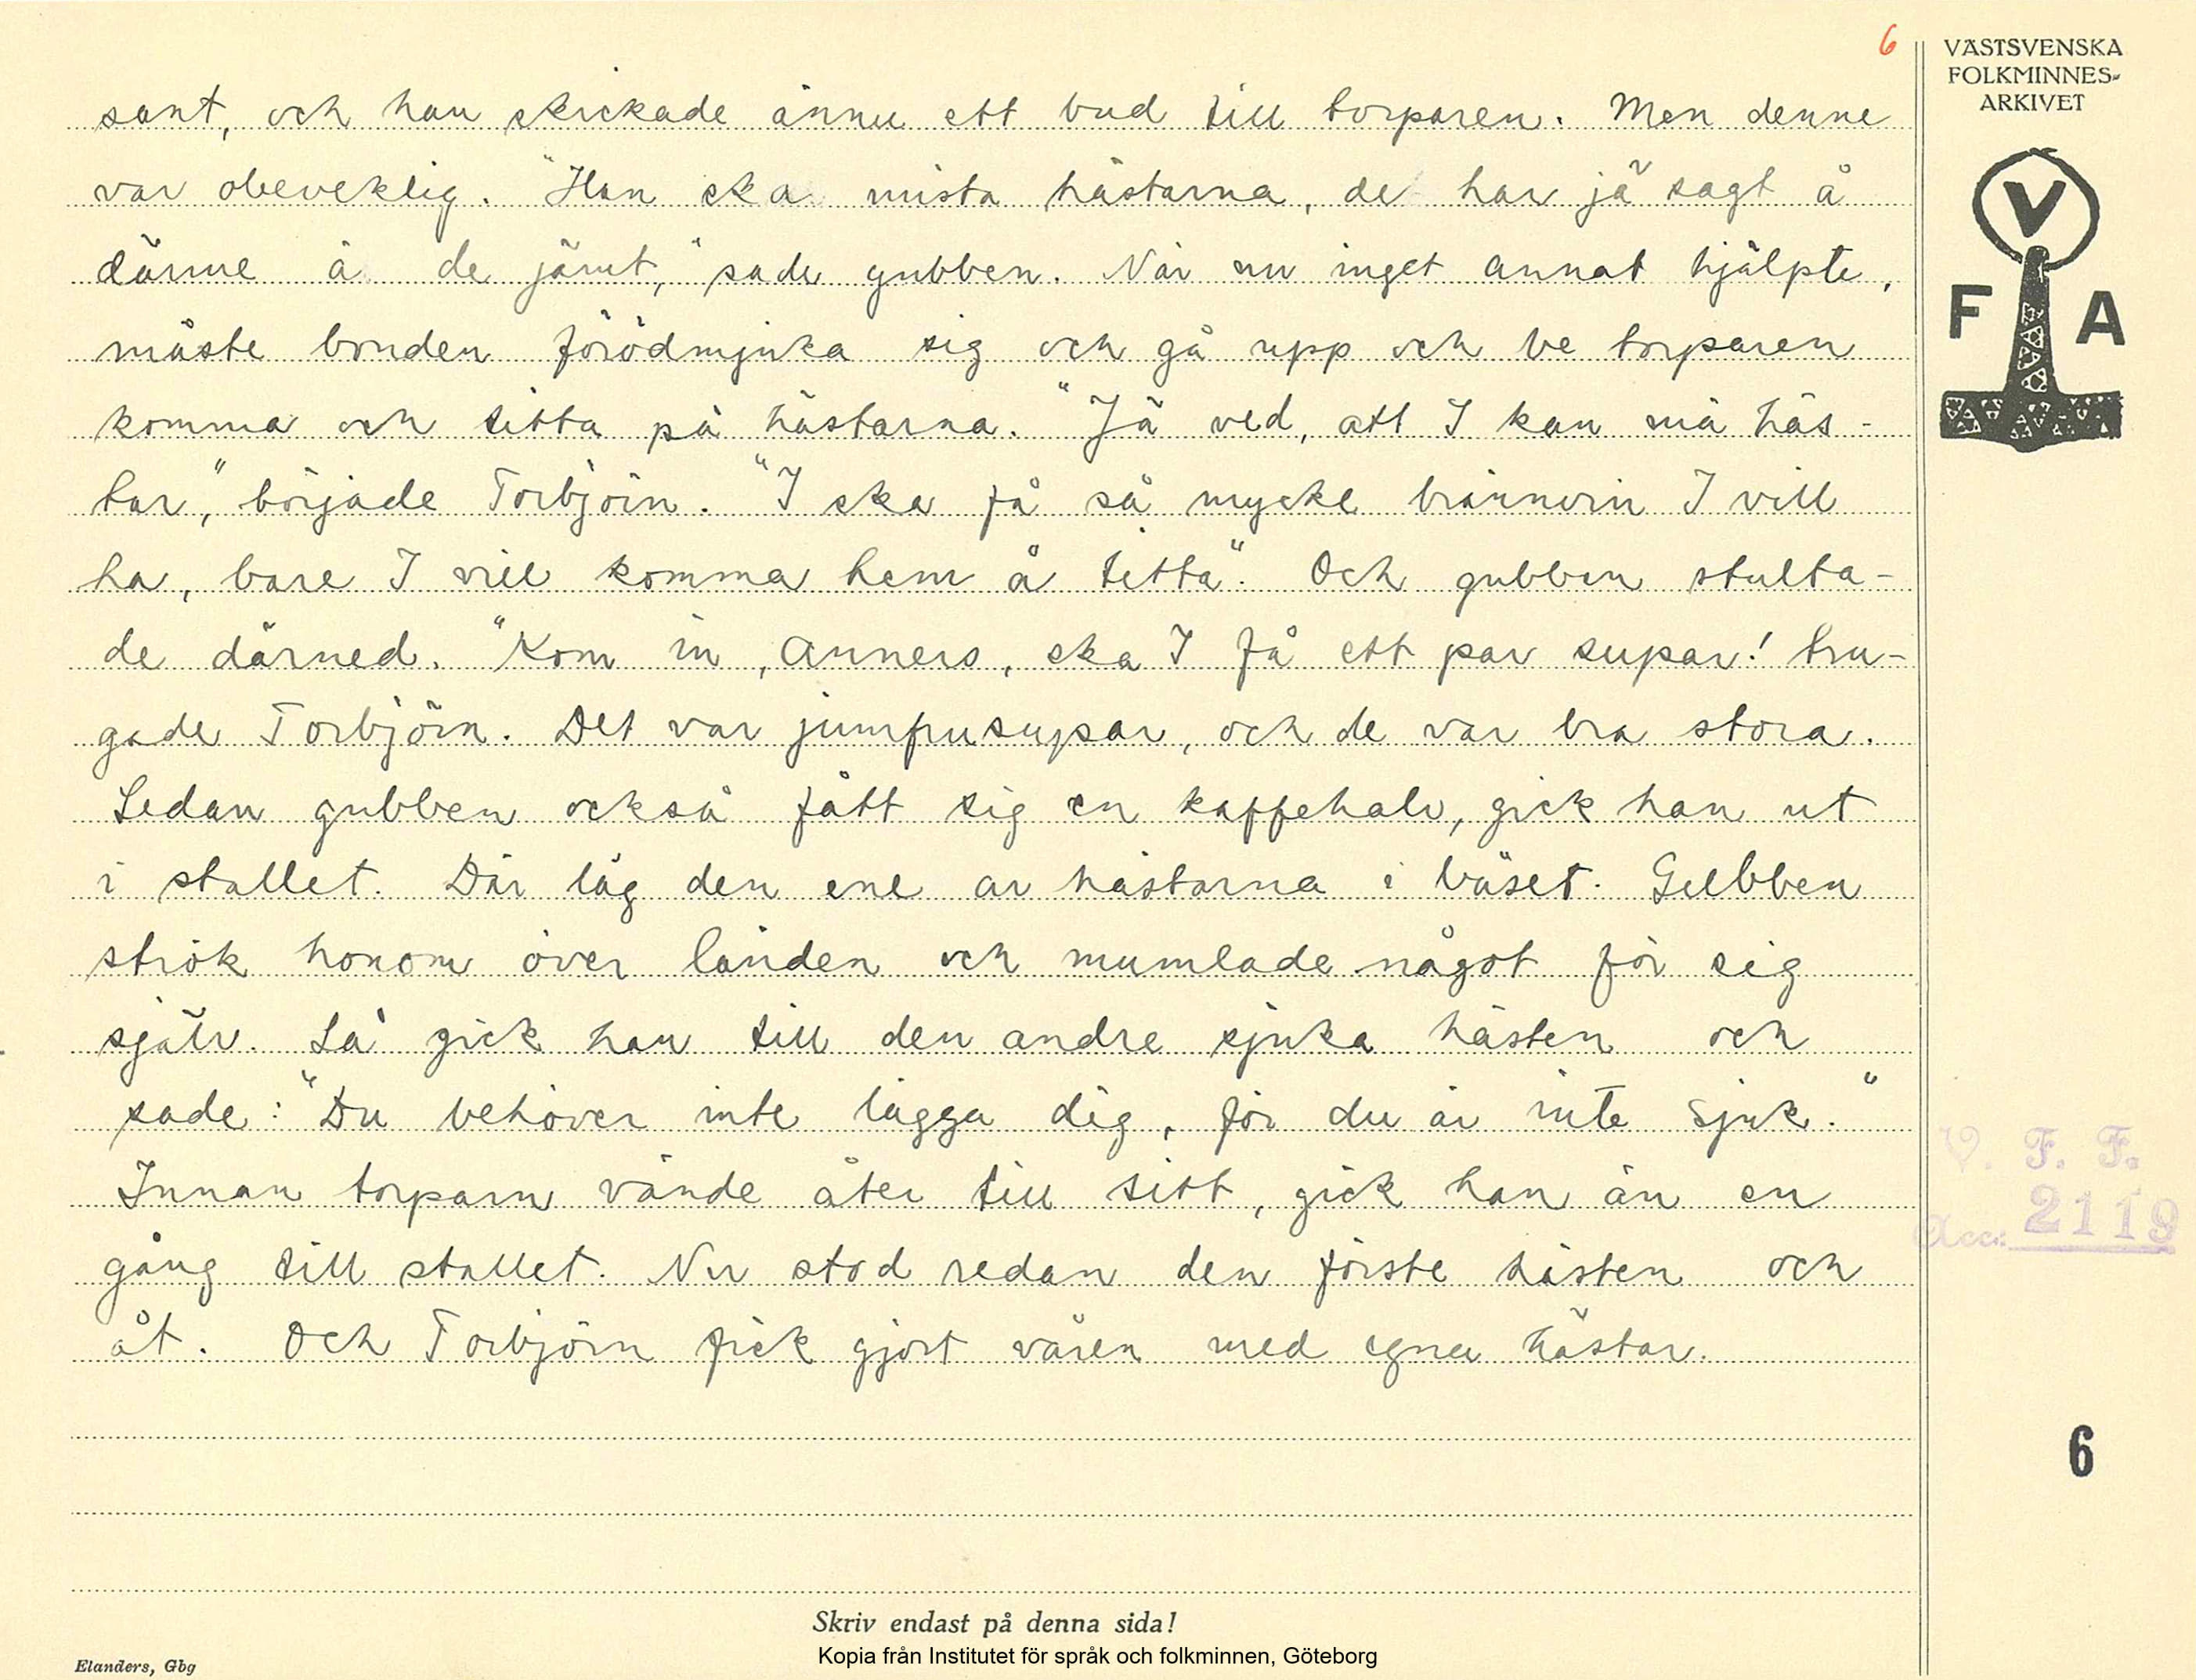 6
VÄSTSVENSKA
FOLKMINNES-
ARKIVET
V
F A
sant, och han skickade ännu ett bud till torparen. Men denne
var obeveklig. "Han ska mista hästarna, de har jä sagt å
därme ä de jämt," sade gubben. När nu inget annat hjälpte,
måste bonden förödmjuka sig och gå upp och be torparen
komma och titta på hästarna. "Jä ved, att I kan må häs-
tar," började Torbjörn. "I ska få så mycke brännvin I vill
ha, bare I vill komma hem å titta". Och gubben stulta-
de därned. "Kom in, Anners, ska I få ett par supar! tru-
gade Torbjörn. Det var jumfrusupar, och de var bra stora.
Sedan gubben också fått sig en kaffehalv, gick han ut
i stallet. Där låg den ene av hästarna i båset. Gubben
strök honom över länden och mumlade något för sig
själv. Så gick han till den andre sjuka hästen och
sade: "Du behöver inte lägga dig, för du är inte sjuk."
Innan torparn vände åter till sitt, gick han än en
gång till stallet. Nu stod redan den förste hästen och
åt. Och Torbjörn fick gjort våren med egna hästar.
V. F. F.
Acc: 2119
6
Skriv endast på denna sida!
Kopia från Institutet för språk och folkminnen, Göteborg
Elanders, Gbg